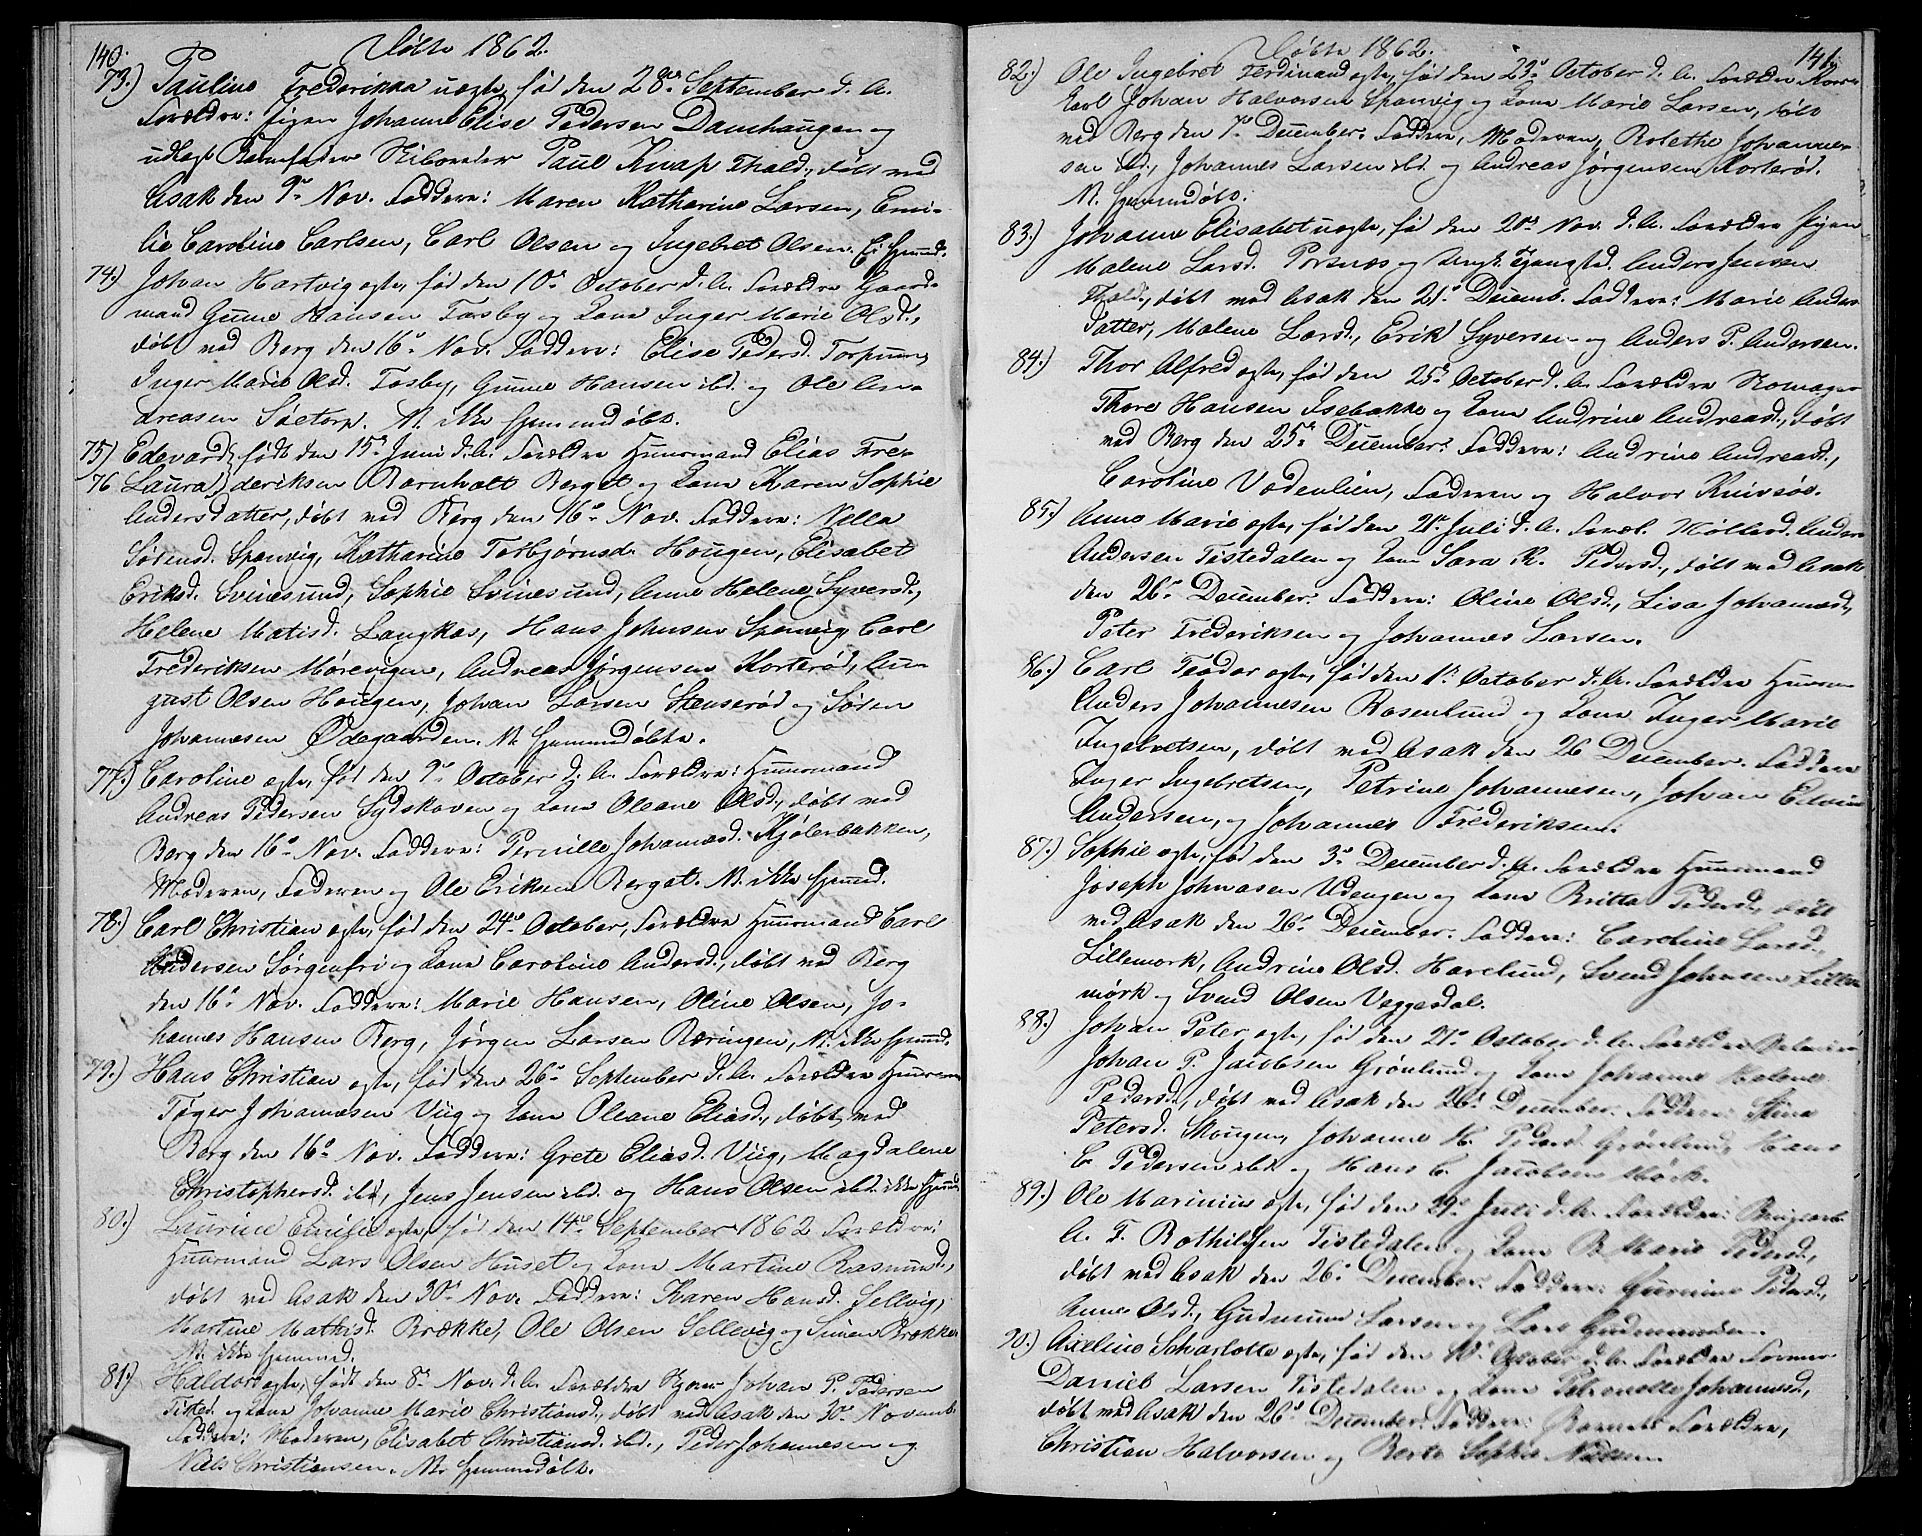 140.
Döbte 1862.
73.) Pauline Frederikka uegte, fød den 28de September d. A.
Forældre: Pigen Johanne Elise Pedersen Damhaugen og
udlagt Barnefader Paul Knap Fhald., døbt ved
Asak den 9de Nov. Faddere: Maren Katharine Larsen, Emi-
lie Caroline Carlsen, Carl Olsen og Ingebret Olsen. Ei hjemmd.
74.) Johan Hartvig egte, fød den 10de October d. A. Forældre Gaard-
mand Gunne Hansen Torsby og Kone Inger Marie Olsd.,
døbt ved Berg den 16de Nov. Faddere: Elise Pedersd. Torpum,
Inger Marie Olsd. Fosby, Gunne Hansen ibd. og Ole An-
dreasen Sætorp. N. ikke hjemmedøbt.
75) Edevard, født den 15de Juni d. A. Forældre Huusmand Elias Fre-
76 Laura, deriksen Barnholt Berget og Kone Karen Sophie
Andersdatter, døbt ved Berg den 16de Nov. Faddere: Nella
Sörensd. Sponvig, Katharine Torbjørnsd. Hougen, Elisabet
Eriksd. Svinesund, Sophie Svinesund, Anne Helene Syversd.,
Helene Matisd. Langkas, Hans Johnsen Sponvig, Carl
Frederiksen Mørevigen, Andreas Jørgensen Korterød, Au-
gust Olsen Hougen, Johan Larsen Stenserød og Sören
Johannesen Ødegaarden. N. hjemmedøbte.
77.) Caroline egte, fød den 9de October d. A. Forældre: Huusmand
Andreas Pedersen Sydskoven og Kone Oleane Olsd., døbt ved
Berg den 16de Nov. Faddere: Pernille Johannesd. Kjølerbakken,
Moderen, Faderen og Ole Eriksen Berget. N. ikke hjemmd.
78.) Carl Christian egte, fød den 24de October, Forældre Huusmand Carl
Andersen Sørgenfri og Kone Caroline Andersd., døbt ved Berg
den 16de Nov. Faddere: Marie Hansen, Oline Olsen, Jo-
hannes Hansen Berg, Jørgen Larsen Røringen, N. ikke hjemmd.
79.) Hans Christian egte, fød den 26de September d. A. Forældre Huusm.
Tøger Johannesen Viig og Kone Oleane Eliasd., døbt ved
Berg den 16de Nov. Faddere: Grete Eliasd. Viig, Magdalene
Christophersd. ibd, Jens Jensen ibd. og Hans Olsen ibd. ikke hjemmd.
80.) Laurine Emilie egte, fød den 14de September 1862 Forældre:
Huusmand Lars Olsen Huset og Kone Martine Rasmusd.,
døbt ved Asak den 30de Nov. Faddere: Karen Hansd. Sellvig,
Martine Mathisd. Brække, Ole Olsen Sellevig og Simen Brække.
N. ikke hjemmed.
81.) Haldor egte, født den 8de Nov. d. A. Forældre Johan P. Pedersen
Tisted. og Kone Johanne Marie Christiansd., døbt ved Asak den 30de Novemb.
Faddere: Moderen, Elisabet Christiansd. ibd., Peder Johannesen og
Niels Christiansen. N. hjemmedøbt.
Döbte 1862.
141.
82.) Ole Ingebret Ferdinand egte, fød den 23de October d. A. Forældre
Carl Johan Halvorsen Sponvig og Kone Marie Larsen, døbt
ved Berg den 7de December. Faddere, Moderen, Rolethe Johanne-
sen ibd., Johannes Larsen ibd. og Andreas Jørgensen Korterød.
N. hjemmedøbt.
83.) Johanne Elisabet uegte, fød den 20de Nov. d. A. Forældre Pigen
Malene Larsd. Porsnæs og Anders Jensen
Fhald., døbt ved Asak den 21de Decemb. Faddere: Marie Anders
datter, Malene Larsd., Erik Syversen og Anders P. Andersen.
84.) Thor Alfred egte, fød den 25de October d. A. Forældre Skomager
Thore Hansen Isebakke og Kone Andrine Andreasd., døbt
ved Berg den 25de December. Faddere: Andrine Andreasd.,
Caroline Vedenlien, Faderen og Halvor Knivsøe.
85.) Anne Marie egte, fød den 21de Juli d. A. Foræl. Møllerd. Anders
Andersen Tistedalen og Kone Sara K. Pedersd., døbt ved Asak
den 26de December. Faddere: Oline Olsd., Lisa Johannesd.,
Peter Frederiksen og Johannes Larsen.
86.) Carl Teodor egte, fød den 1de October d. A. Forældre Huusm.
Anders Johannesen Rosenlund og Kone Inger Marie
Ingebretsen, døbt ved Asak den 26 December. Faddere
Inger Ingebretsen, Petrine Johannesen, Johan Edvin
Andersen, og Johannes Frederiksen.
87.) Sophie egte, fød den 3de December d. A. Forældre Huusmand
Joseph Johnasen Udengen og Kone Britta Pedersd., døbt
ved Asak den 26de December. Faddere: Caroline Larsd.
Lillemørk, Andrine Olsd. Havelund, Svend Johnsen Lille-
mørk og Svend Olsen Veggesdal.
88.) Johan Peter egte, fød den 21de October d. A. Forældre
Johan P. Jacobsen Grønlund og Kone Johanne Malene
Pedersd., døbt ved Asak den 26de December. Faddere: Stina
Petersd. Skougen, Johanne H. Pedersd. Grönlund, Hans
C. Pedersen ibd. og Hans C. Jacobsen Mørk.
89.) Ole Marinius egte, fød den 29de Juli d. A. Forældre:
A. F. Bothilfsen Tistedalen og Kone B. Marie Pedersd.,
døbt ved Asak den 26de December. Faddere: Gurine Pedersd.,
Anne Olsd., Gudmun Larsen og Lars Gudmundsen.
90.) Axeline Scharlotte egte, fød den 10de October d. A. Forældre Former
Daniel Larsen Tistedalen og Kone Petronelle Johannesd.,
døbt ved Asak den 26de December. Faddere: Barnets Forældre,
Christian Halvorsen og Berte Sophie Nilsen.